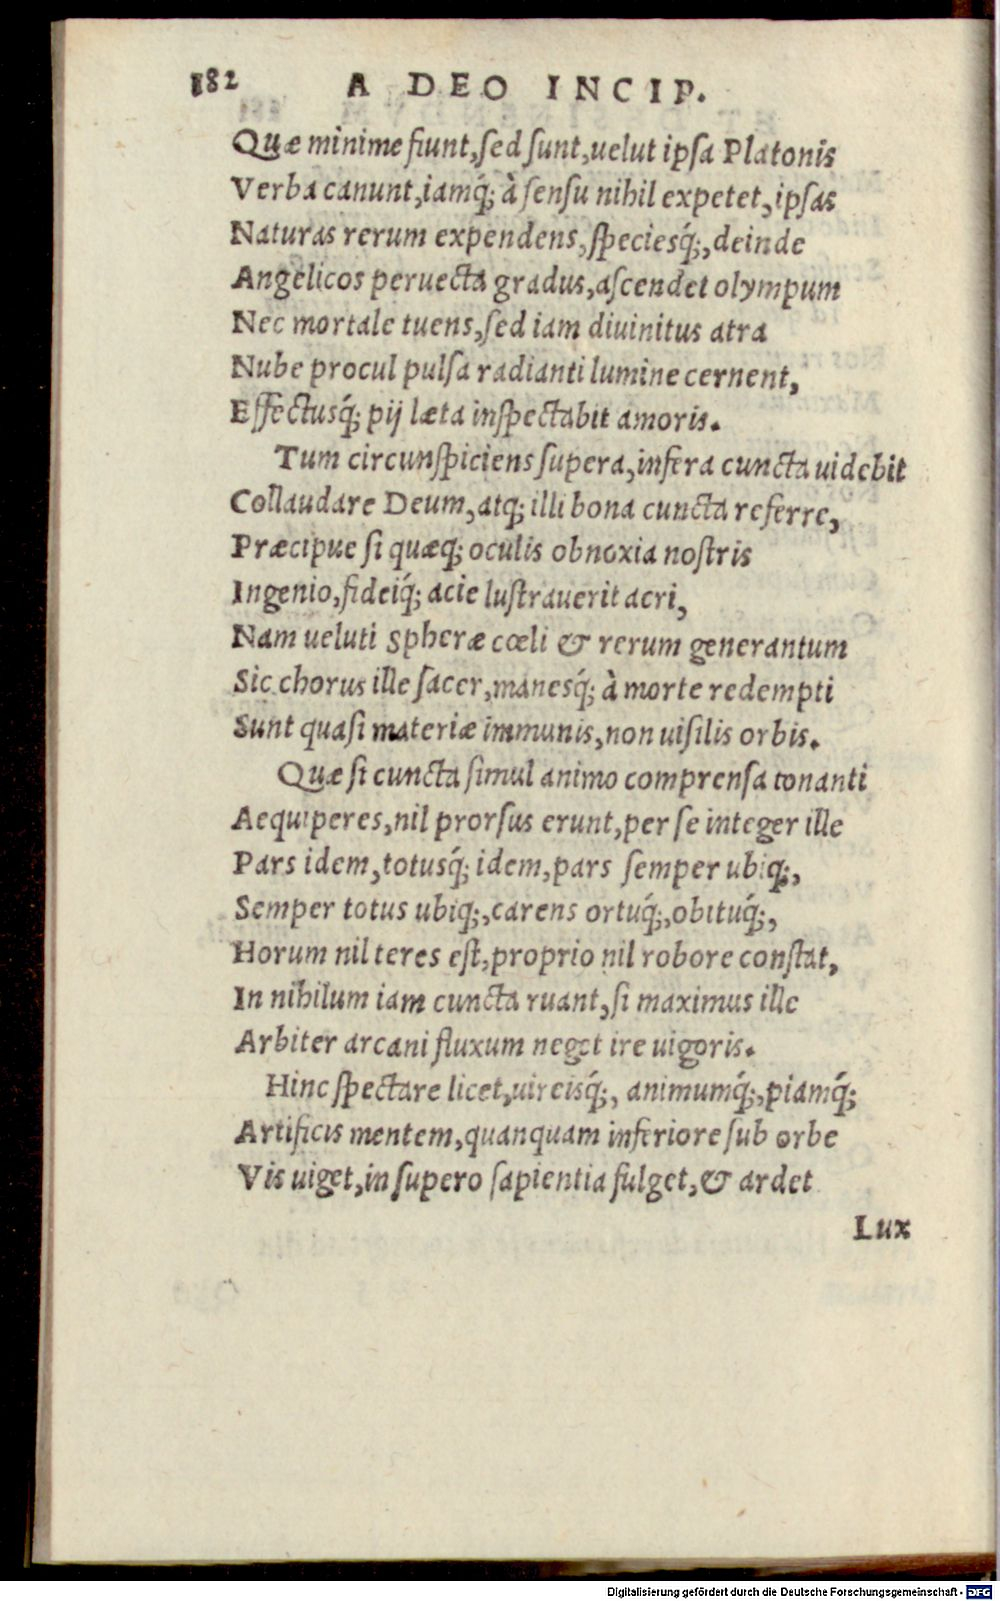 182 A DEO INCIP.
Quæ minime fiunt,ſed ſunt,uelut ipſa Platonis
Verba canunt,iamq́; à ſenſu nihil expetet,ipſas
Naturas rerum expendens,ſpeciesq́;,deinde
Angelicos peruecta gradus,aſcendet olympum
Nec mortale tuens,ſed iam diuinitus atra
Nube procul pulſa radianti lumine cernent,
Effectusq́; pij læta inſpectabit amoris.
Tum circunſpiciens ſupera,infera cuncta uidebit
Collaudare Deum,atq; illi bona cuncta referre,
Præcipue ſi quæq; oculis obnoxia noſtris
Ingenio,fideiq́; acie luſtrauerit acri,
Nam ueluti ſpheræ cœli & rerum generantum
Sic chorus ille ſacer,manesq́; à morte redempti
Sunt quaſi materiæ immunis,non uiſilis orbis.
Quæ ſi cuncta ſimul animo comprenſa tonanti
Aequiperes,nil prorſus erunt,per ſe integer ille
Pars idem,totusq́; idem,pars ſemper ubiq;,
Semper totus ubiq;,carens ortuq́;,obituq́;,
Horum nil teres eſt,proprio nil robore conſtat,
In nihilum iam cuncta ruant,ſi maximus ille
Arbiter arcani fluxum neget ire uigoris.
Hinc ſpectare licet,uireisq́;, animumq́;,piamq́;
Artificis mentem,quanquam inferiore ſub orbe
Vis uiget,in ſupero ſapientia fulget,& ardet
Lux
Digitalisierung gefördert durch die Deutsche Forschungsgemeinschaft - DFG